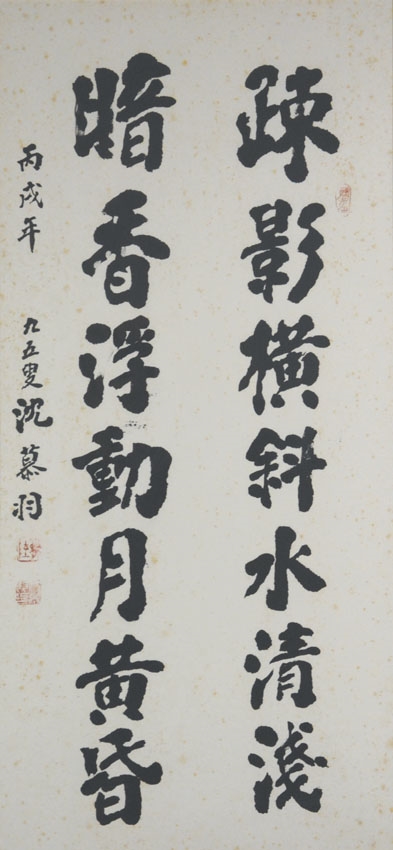 疎影橫斜水清淺
暗香浮動月黃昏
丙戌年 九五叟沈慕羽